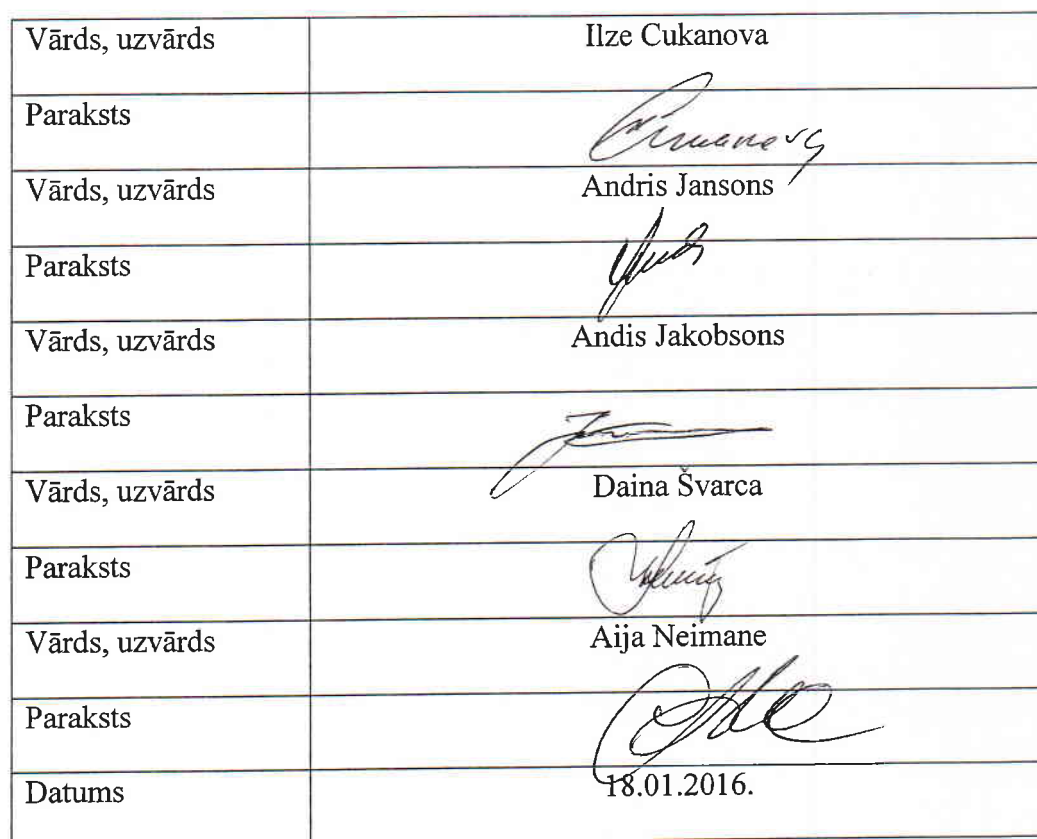 Vārds, uzvārds Ilze Cukanova
Paraksts
Vārds, uzvārds Andris Jansons
Paraksts
Vārds, uzvārds Andis Jakobsons
Paraksts
Vārds, uzvārds Daina Švarca
Paraksts
Vārds, uzvārds Aija Neimane
Paraksts
Datums 18.01.2016.